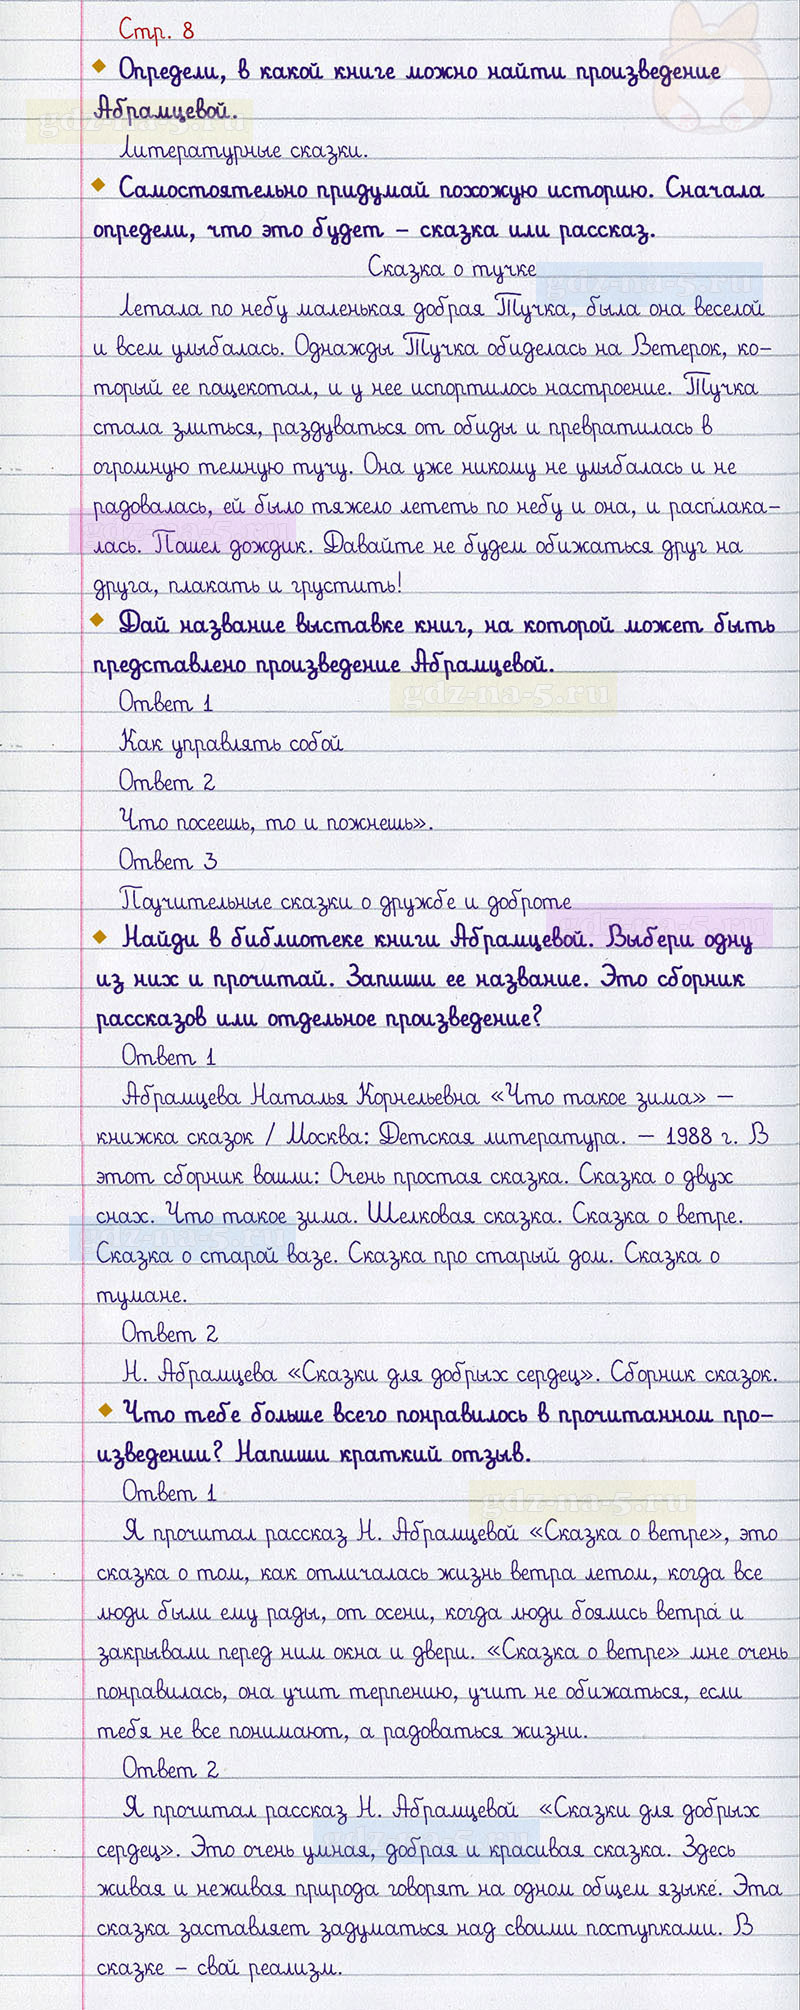 Стр. 8
Определи, в какой книге можно найти произведение
Абрамцевой.
gdz-na-5.ru
Литературные сказки.
Самостоятельно придумай похожую историю. Сначала
определи, что это будет – сказка или рассказ.
Сказка о тучке
gdz-na-5.ru
Летала по небу маленькая добрая Тучка, была она веселой
и всем улыбалась. Однажды Тучка обиделась на Ветерок, ко-
торый ее пощекотал, и у нее испортилось настроение. Тучка
стала злиться, раздуваться от обиды и превратилась в
огромную темную тучу. Она уже никому не улыбалась и не
радовалась, ей было тяжело лететь по небу и она, и расплака-
gdz-na-5.ru
лась. Пошел дождик. Давайте не будем обижаться друг на
друга, плакать и грустить!
Дай название выставке книг, на которой может быть
представлено произведение Абрамцевой.
gdz-na-5.ru
Ответ 1
Как управлять собой
Ответ 2
Что посеешь, то и пожнешь».
Ответ 3
Поучительные сказки о дружбе и доброте
gdz-na-5.ru
Найди в библиотеке книги Абрамцевой. Выбери одну
из них и прочитай. Запиши ее название. Это сборник
рассказов или отдельное произведение?
Ответ 1
Абрамцева Наталья Корнельевна «Что такое зима» –
книжка сказок / Москва: Детская литература. – 1988 г. В
этот сборник вошли: Очень простая сказка. Сказка о двух
снах. Что такое зима. Шелковая сказка. Сказка о ветре.
gdz-na-5.ru
Сказка о старой вазе. Сказка про старый дом. Сказка о
тумане.
Ответ 2
Н. Абрамцева «Сказки для добрых сердец». Сборник сказок.
Что тебе больше всего понравилось в прочитанном про-
изведении? Напиши краткий отзыв.
Ответ 1
gdz-na-5.ru
Я прочитал рассказ Н. Абрамцевой «Сказка о ветре», это
сказка о том, как отличалась жизнь ветра летом, когда все
люди были ему рады, от осени, когда люди боялись ветра и
закрывали перед ним окна и двери. «Сказка о ветре» мне очень
понравилась, она учит терпению, учит не обижаться, если
тебя не все понимают, а радоваться жизни.
Ответ 2
Я прочитал рассказ Н. Абрамцевой «Сказки для добрых
gdz-na-5.ru
сердец». Это очень умная, добрая и красивая сказка. Здесь
живая и неживая природа говорят на одном общем языке. Эта
сказка заставляет задуматься над своими поступками. В
сказке – свой реализм.